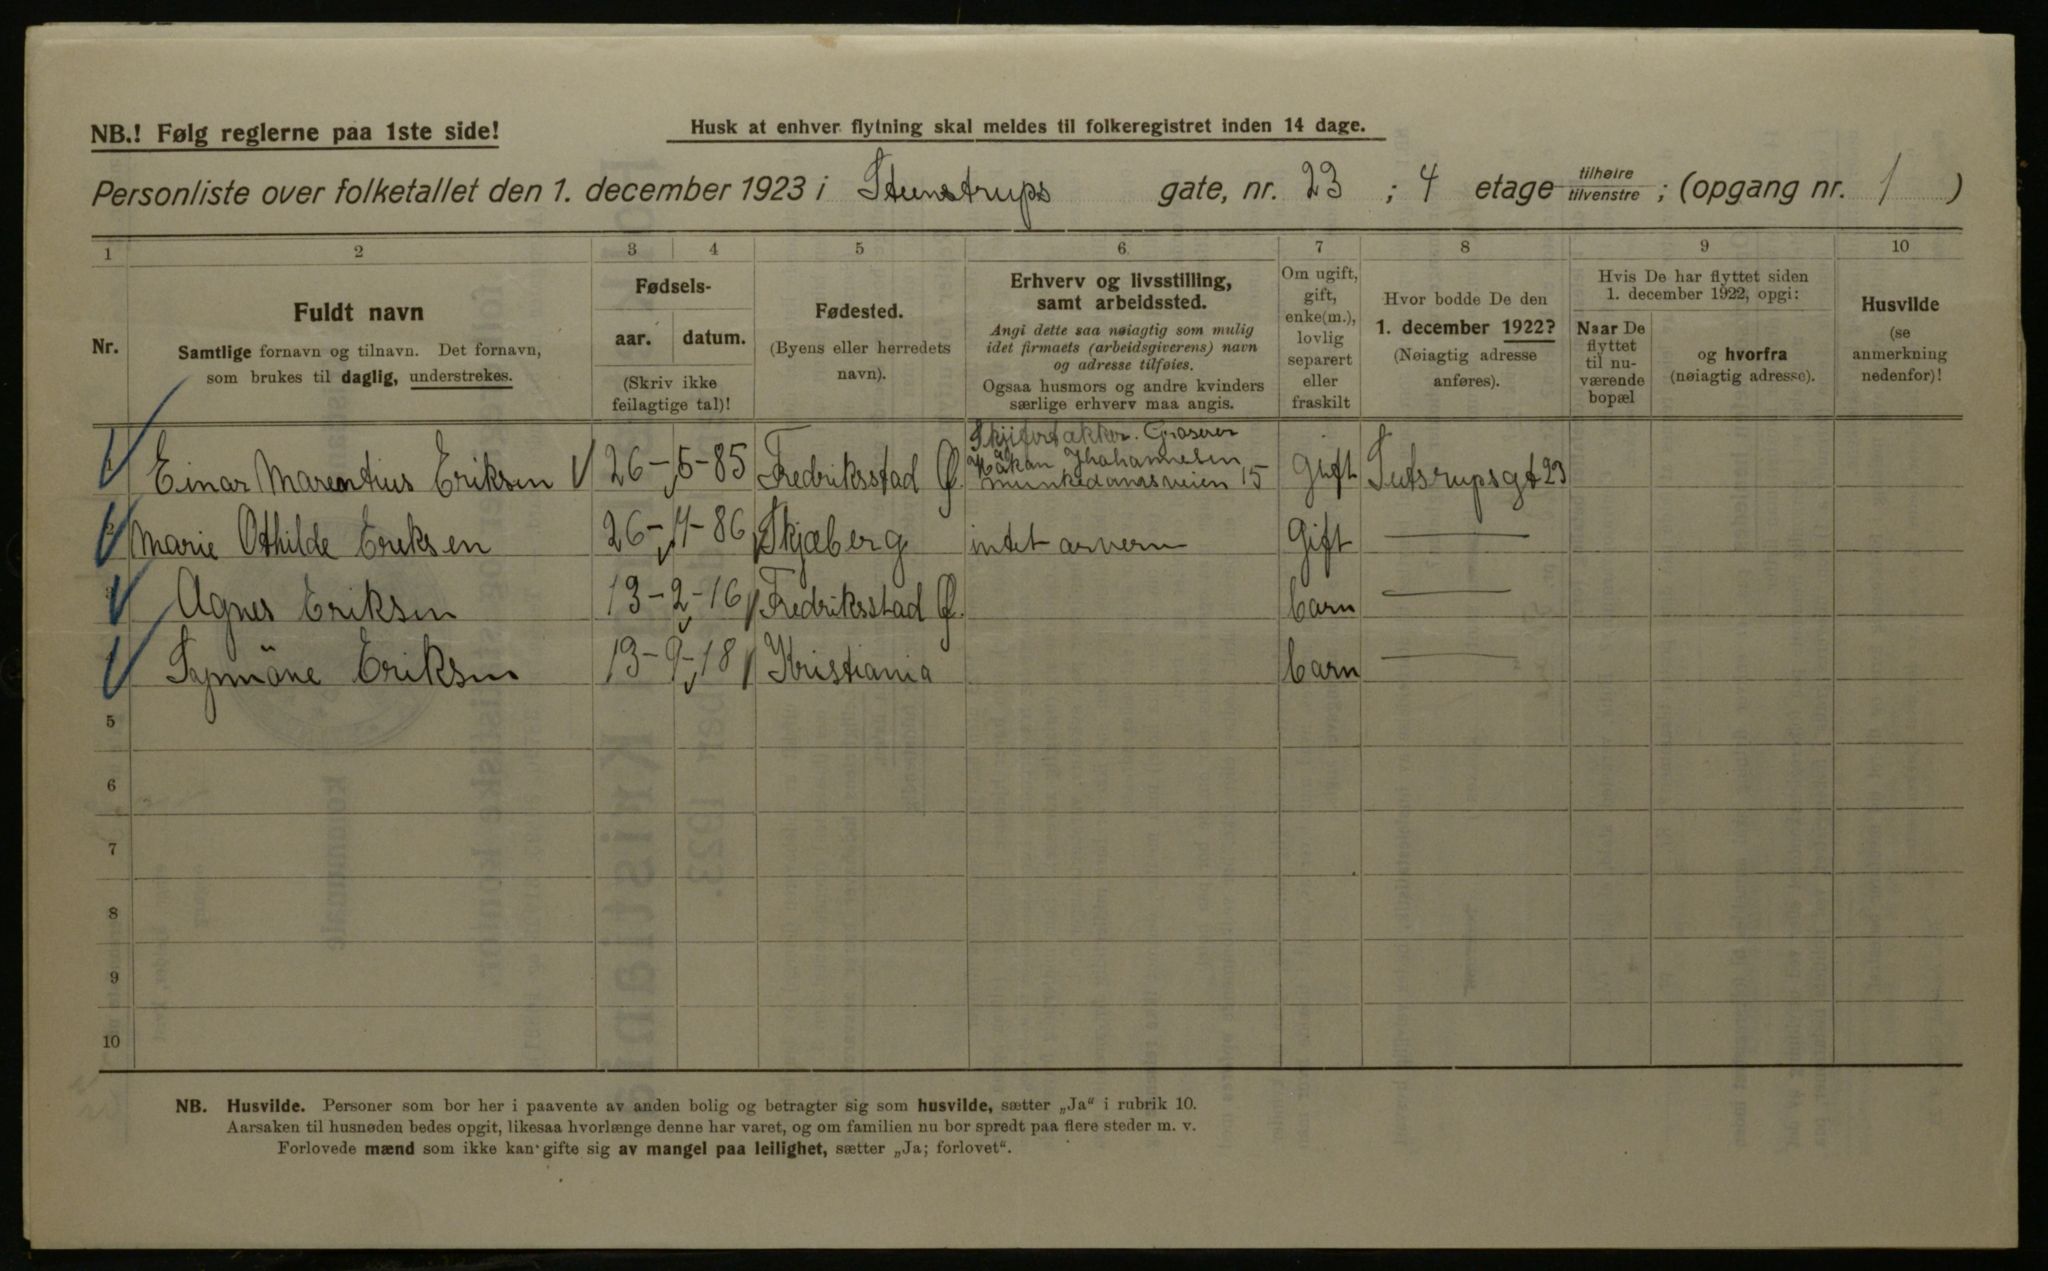 NB.! Følg reglerne paa 1ste side!
Husk at enhver flytning skal meldes til folkeregistret inden 14 dage.
Personliste over folketallet den 1. december 1923 i Steenstrups gate, nr. 23 ; 4 etage tilhøire / tilvenstre ; (opgang nr. 1 )
1 2 3 4 5 6 7 8 9 10
Nr.
Fuldt navn
Samtlige fornavn og tilnavn. Det fornavn,
som brukes til daglig, understrekes.
Fødsels-
aar. datum.
(Skriv ikke
feilagtige tal)!
Fødested.
(Byens eller herredets
navn).
Erhverv og livsstilling,
samt arbeidssted.
Angi dette saa nøiagtig som mulig
idet firmaets (arbeidsgiverens) navn
og adresse tilføies.
Ogsaa husmors og andre kvinders
særlige erhverv maa angis.
Om ugift,
gift,
enke(m.),
lovlig
separert
eller
fraskilt
Hvor bodde De den
1. december 1922?
(Nøiagtig adresse
anføres).
Hvis De har flyttet siden
1. december 1922, opgi:
Naar De
flyttet
til nu-
værende
bopæl
og hvorfra
(nøiagtig adresse).
Husvilde
(se
anmerkning
nedenfor)!
Einar Marentius Eriksen 26-5-85 Fredriksstad Ø.
Håkan
Munkedamsveien 15
Gift 23
2 Marie Othilde Ereksen 26- -86 Skjæberg intet Gift
3 Agnes Eriksen 13-2-16 Fredriksstad Ø. barn
Eriksen 13-9-18 Kristiania barn
5
6
7
8
9
10
NB. Husvilde. Personer som bor her i paavente av anden bolig og betragter sig som husvilde, sætter „Ja“ i rubrik 10.
Aarsaken til husnøden bedes opgit, likesaa hvorlænge denne har varet, og om familien nu bor spredt paa flere steder m. v.
Forlovede mænd som ikke kan gifte sig av mangel paa leilighet, sætter „Ja; forlovet“.